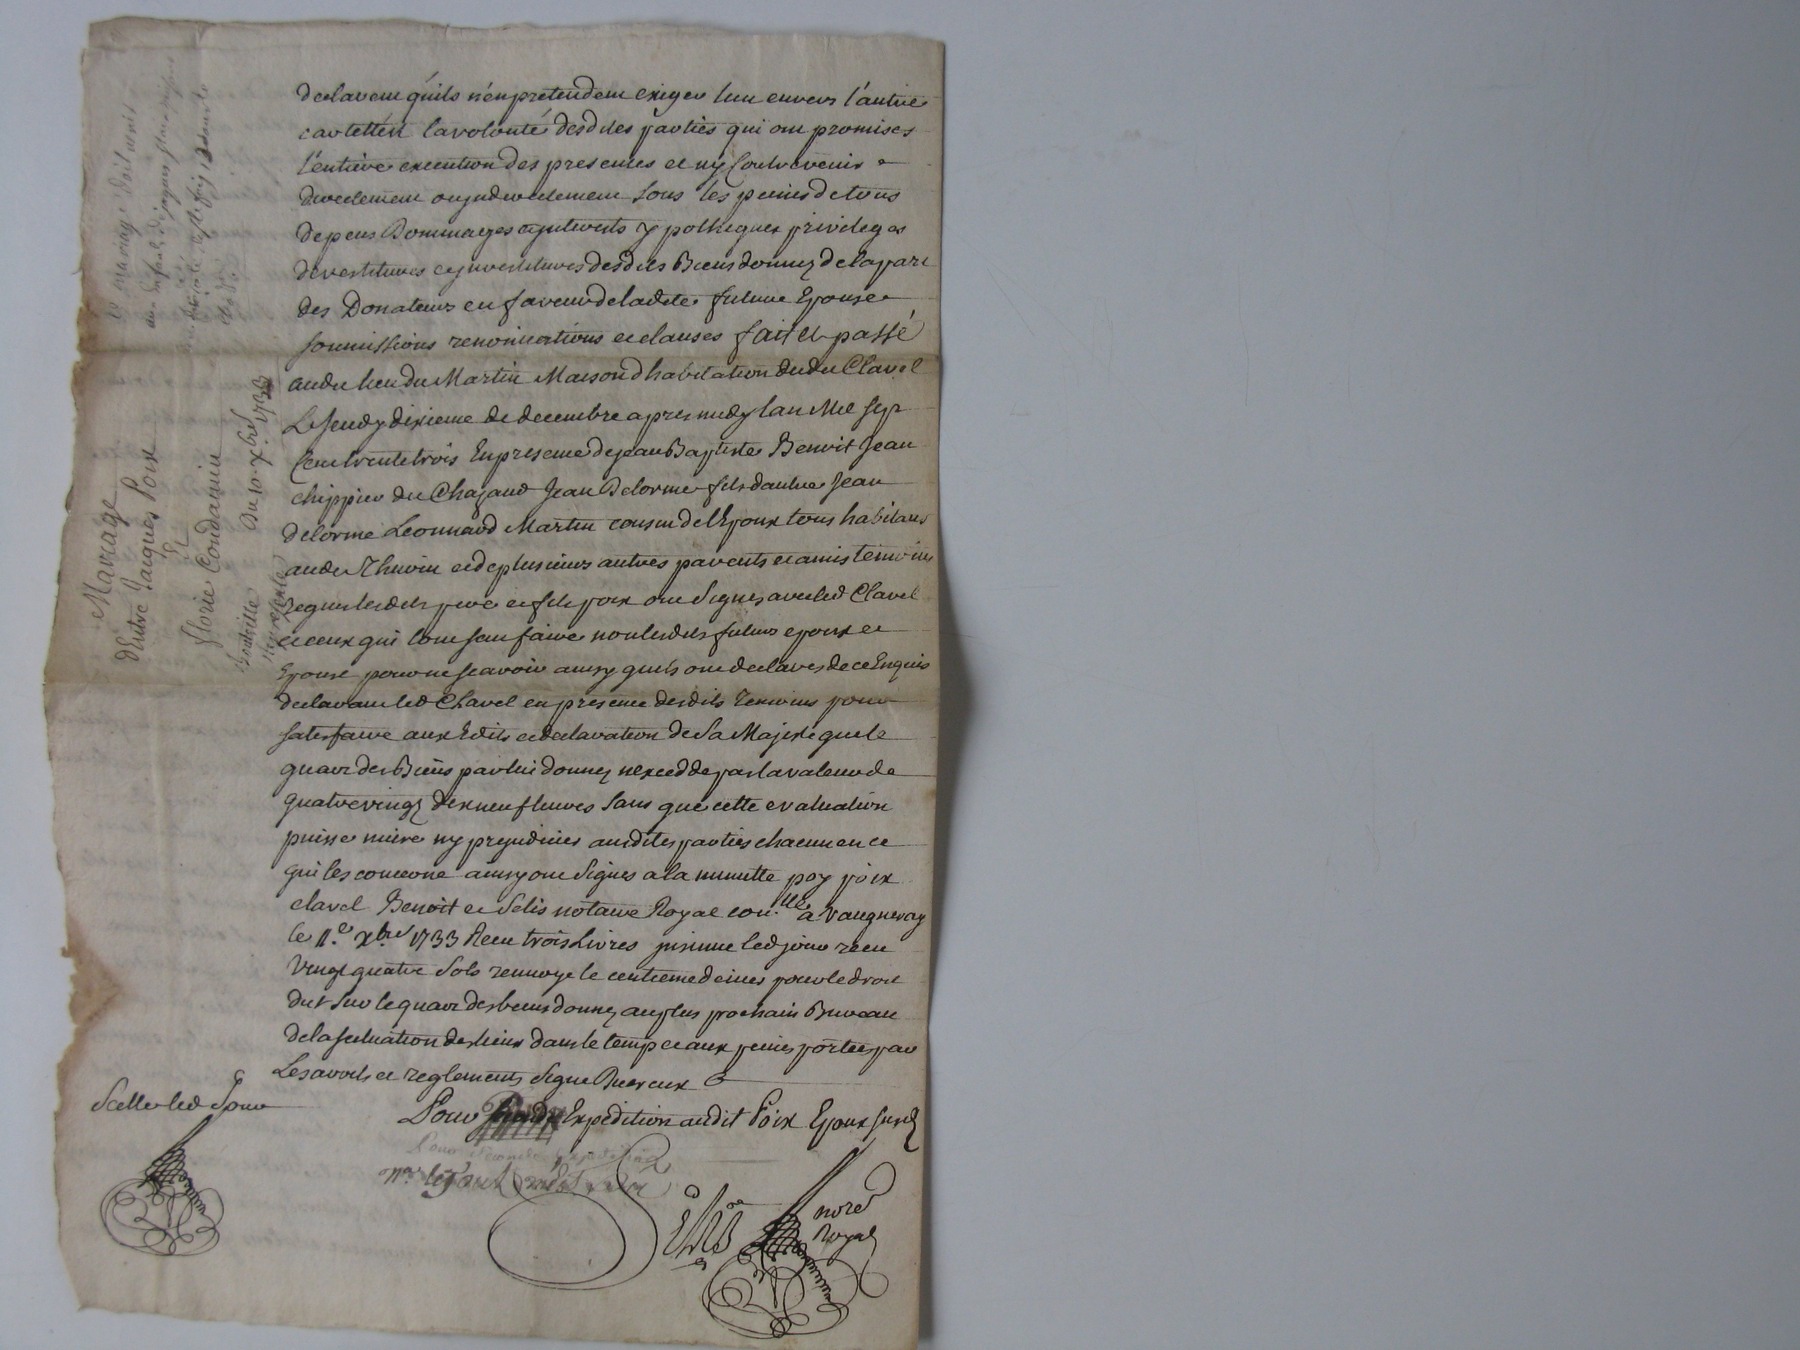 declarent quils n'en pretendent exiger lun envers l'autre
car tell'est la volonté desdites parties qui ont promises
l'entiere execution des presentes et ny Contrevenir
directement ou yndirectement sous les peines de tous
depens Dommages et ynterests ypotheques privileges
devestitures et ynvestitures desdits Biens donnez de la part
des Donateurs en faveur de ladite future Epouse
soumissions renonciations et clauses fait et passé
audit lieu du Martin Maison d habitation dudit Clavel
Le Jeudy dixieme de decembre apres midy lan Mil sept
Cent trente trois En presence de jean Baptiste Benoit Jean
chippier du Chazaud Jean Delorme fils d'autre Jean
delorme Leonnard Martin cousin de l'Epoux tous habitans
audit Thurin et de plusieurs autres parents et amis temoins
requis lesdits pere et fils poix ont Signes avec led Clavel
et ceux qui lont sceu faire non lesdits futurs epoux et
Epouse pour ne scavoir ainsy quils ont declares de ce Enquis
declarant led Clavel en presence desdits temoins pour
satisfaire aux Edits et declaration de Sa Majesté que le
quart des Biens par luy donnez nexcedde pas la valeur de
quatre vingt dix neuf livres sans que cette evaluation
puisse nuire ny prejudicier ausdites parties chacune en ce
qui les concerne ainsy ont Signes a la minutte poy poix
clavel Benoit et Selis notaire Royal con.lle a Vaugneray
le 11.e xbre 1733 Receu trois Livres insinué led jour receu
Vingt quatre Sols renvoye le centieme denier pour le droit
dut sur le quart des biens donnez au plus prochain Bureau
de la scituation des lieux dans le temp et aux peines portées par
Les arrets et reglements Signe
Scelle led Jour
Pour Expedition audit Poix Epoux susd
nore
Royal
Mariage
d'Entre Jacques Poix
Et
florie Condamin
Du 10 xbre 1733